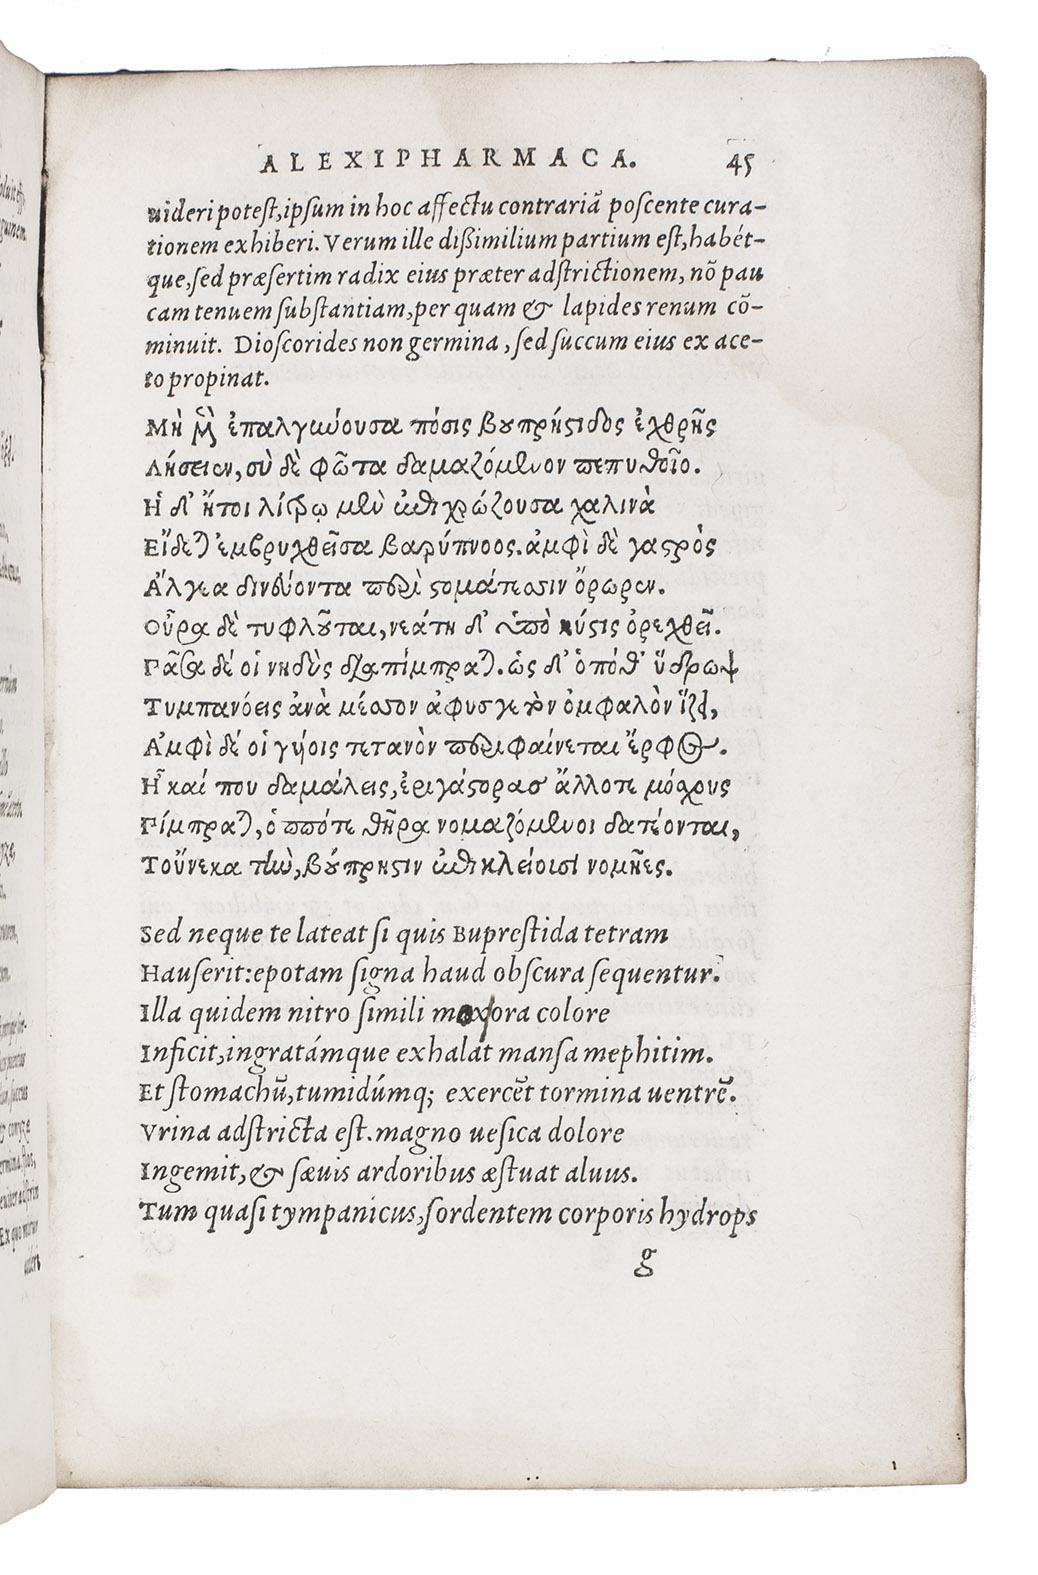 ALEXIPHARMACA. 45
uideri potest, ipsum in hoc affectu contrariã poscente cura-
tionem exhiberi. Verum ille dißimilium partium est, habét-
que, sed præsertim radix eius præter adstrictionem, nõ pau
cam tenuem substantiam, per quam & lapides renum cõ-
minuit. Dioscorides non germina, sed succum eius ex ace-
to propinat.
Μὴ μὲν ἐπαλγύουσα πόσις βουπρήστιδος ἐχθρῆς
Λήσειεν, σὺ δὲ φῶτα δαμαζόμενον πεπύθοιο.
Ἡ δ' ἤτοι λίτρῳ μὲν ἐπιχρώζουσα χαλινὰ
Εἴδεται ἐμβρυχθεῖσα βαρύπνοος. ἀμφὶ δὲ γαστρὸς
Ἄλγεα δινεύοντα περὶ στομάτεσσιν ὄρωρεν.
Οὖρα δὲ τυφλοῦται, νεάτη δ' ὑπὸ κύστις ὀρεχθεῖ.
Πᾶσα δέ οἱ νηδὺς διαπίμπραται. ὡς δ' ὁπόθ' ὕδρωψ
Τυμπανόεις ἀνὰ μέσσον ἀφυσγετὸν ὀμφαλὸν ἵζει,
Ἀμφὶ δέ οἱ γυίοις τετανὸν περιφαίνεται ἔρφος.
Ἦ καί που δαμάλεις, ἐριγάστορας ἄλλοτε μόσχους
Πίμπραται, ὁππότε θῆρα νομαζόμενοι δατέονται,
Τοὔνεκα τὴν, βούπρηστιν ἐπικλείουσι νομῆες.
Sed neque te lateat si quis Buprestida tetram
Hauserit: epotam signa haud obscura sequentur.
Illa quidem nitro simili ora colore
Inficit, ingratámque exhalat mansa mephitim.
Et stomachũ, tumidúmq; exercẽt tormina uentrẽ.
Vrina adstricta est. magno uesica dolore
Ingemit, & sæuis ardoribus æstuat aluus.
Tum quasi tympanicus, sordentem corporis hydrops
g